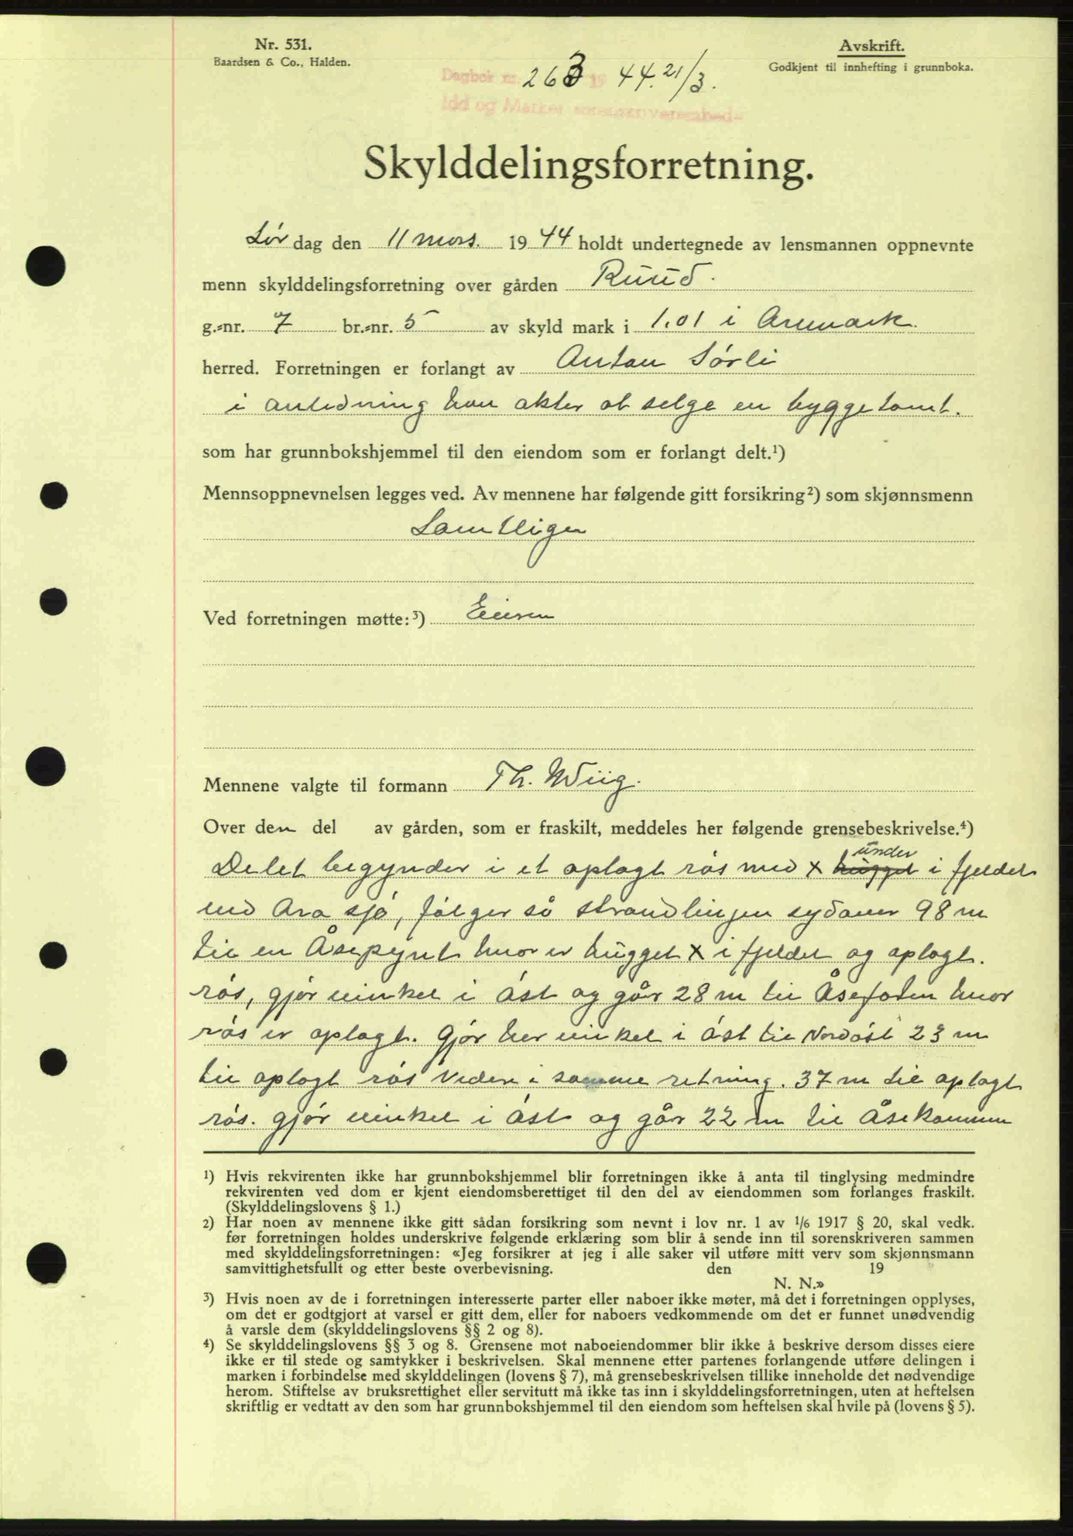 Nr. 531.
Baardsen & Co., Halden.
Avskrift.
Godkjent til innhefting i grunnboka.
Dagbok nr. 263 19 44. 21/3.
Idd og Marker sorenskriverembede
Skylddelingsforretning.
Lørdag den 11 mars. 1944 holdt undertegnede av lensmannen oppnevnte
menn skylddelingsforretning over gården Ruud.
g.=nr. 7 br.=nr. 5 av skyld mark i 1.01 i Aremark.
herred. Forretningen er forlangt av Anton Sørli
i anledning han akter at selge en byggetomt.
som har grunnbokshjemmel til den eiendom som er forlangt delt.¹)
Mennsoppnevnelsen legges ved. Av mennene har følgende gitt forsikring²) som skjønnsmenn
Samtlige
Ved forretningen møtte:³) Eieren
Mennene valgte til formann Th. Wiig.
Over den del av gården, som er fraskilt, meddeles her følgende grensebeskrivelse.⁴)
under
Delet begynder i et oplagt røs med x hugget i fjeldet
ved Ara sjø, følger så strandlinjen sydover 98 m
til en Åsepynt hvor er hugget x i fjeldet og oplagt.
røs, gjør vinkel i øst og går 28 m til Åsefoten hvor
røs er oplagt. Gjør her vinkel i øst til Nordøst 23 m
til oplagt røs videre i samme retning. 37 m til oplagt
røs. gjør vinkel i øst og går 22 m til Åsekammen
¹) Hvis rekvirenten ikke har grunnbokshjemmel blir forretningen ikke å anta til tinglysing medmindre
rekvirenten ved dom er kjent eiendomsberettiget til den del av eiendommen som forlanges fraskilt.
(Skylddelingslovens § 1.)
²) Har noen av mennene ikke gitt sådan forsikring som nevnt i lov nr. 1 av 1/6 1917 § 20, skal vedk.
før forretningen holdes underskrive følgende erklæring som blir å sende inn til sorenskriveren sammen
med skylddelingsforretningen: «Jeg forsikrer at jeg i alle saker vil utføre mitt verv som skjønnsmann
samvittighetsfullt og etter beste overbevisning. den 19
N. N.»
³) Hvis noen av de i forretningen interesserte parter eller naboer ikke møter, må det i forretningen opplyses,
om det er godtgjort at varsel er gitt dem, eller for naboers vedkommende om det er funnet unødvendig
å varsle dem (skylddelingslovens §§ 2 og 8).
⁴) Se skylddelingslovens §§ 3 og 8. Grensene mot naboeiendommer blir ikke å beskrive dersom disses eiere
ikke er til stede og samtykker i beskrivelsen. Skal mennene etter partenes forlangende utføre delingen i
marken i forbindelse med skylddelingen (lovens § 7), må grensebeskrivelsen tillike inneholde det nødvendige
herom. Stiftelse av bruksrettighet eller servitutt må ikke tas inn i skylddelingsforretningen, uten at heftelsen
skriftlig er vedtatt av den som har grunnbokshjemmel til den eiendom som heftelsen skal hvile på (lovens § 5).